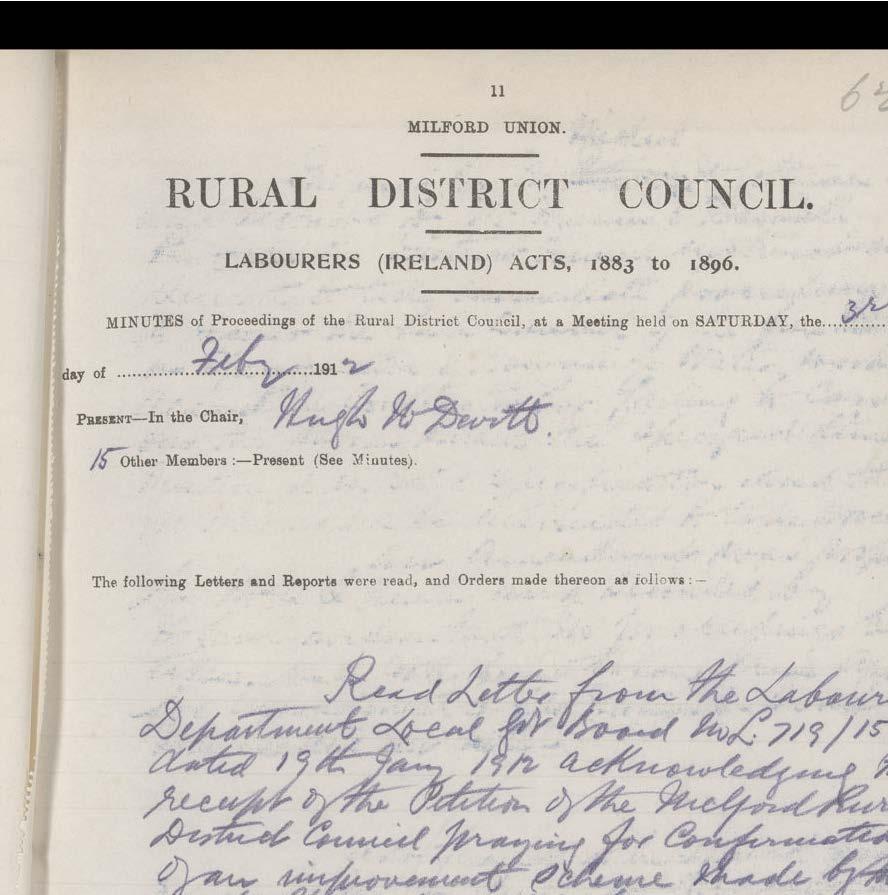 11
6
MILFORD UNION.
RURAL DISTRICT COUNCIL.
LABOURERS (IRELAND) ACTS, 1883 to 1896.
MINUTES of Proceedings of the Rural District Council, at a Meeting held on SATURDAY, the 3r
day of Feby 1912
PRESENT—In the Chair, Hugh McDevitt.
15 Other Members :—Present (See Minutes).
The following Letters and Reports were read, and Orders made thereon as follows :—
Read Letter from the Labour
Department Local Govt Board No L. 719/15
dated 19th Jany 1912 acknowledging
receipt of the Petition of the Milford Rur
District Council praying for Confirmatio
of an improvement scheme made by